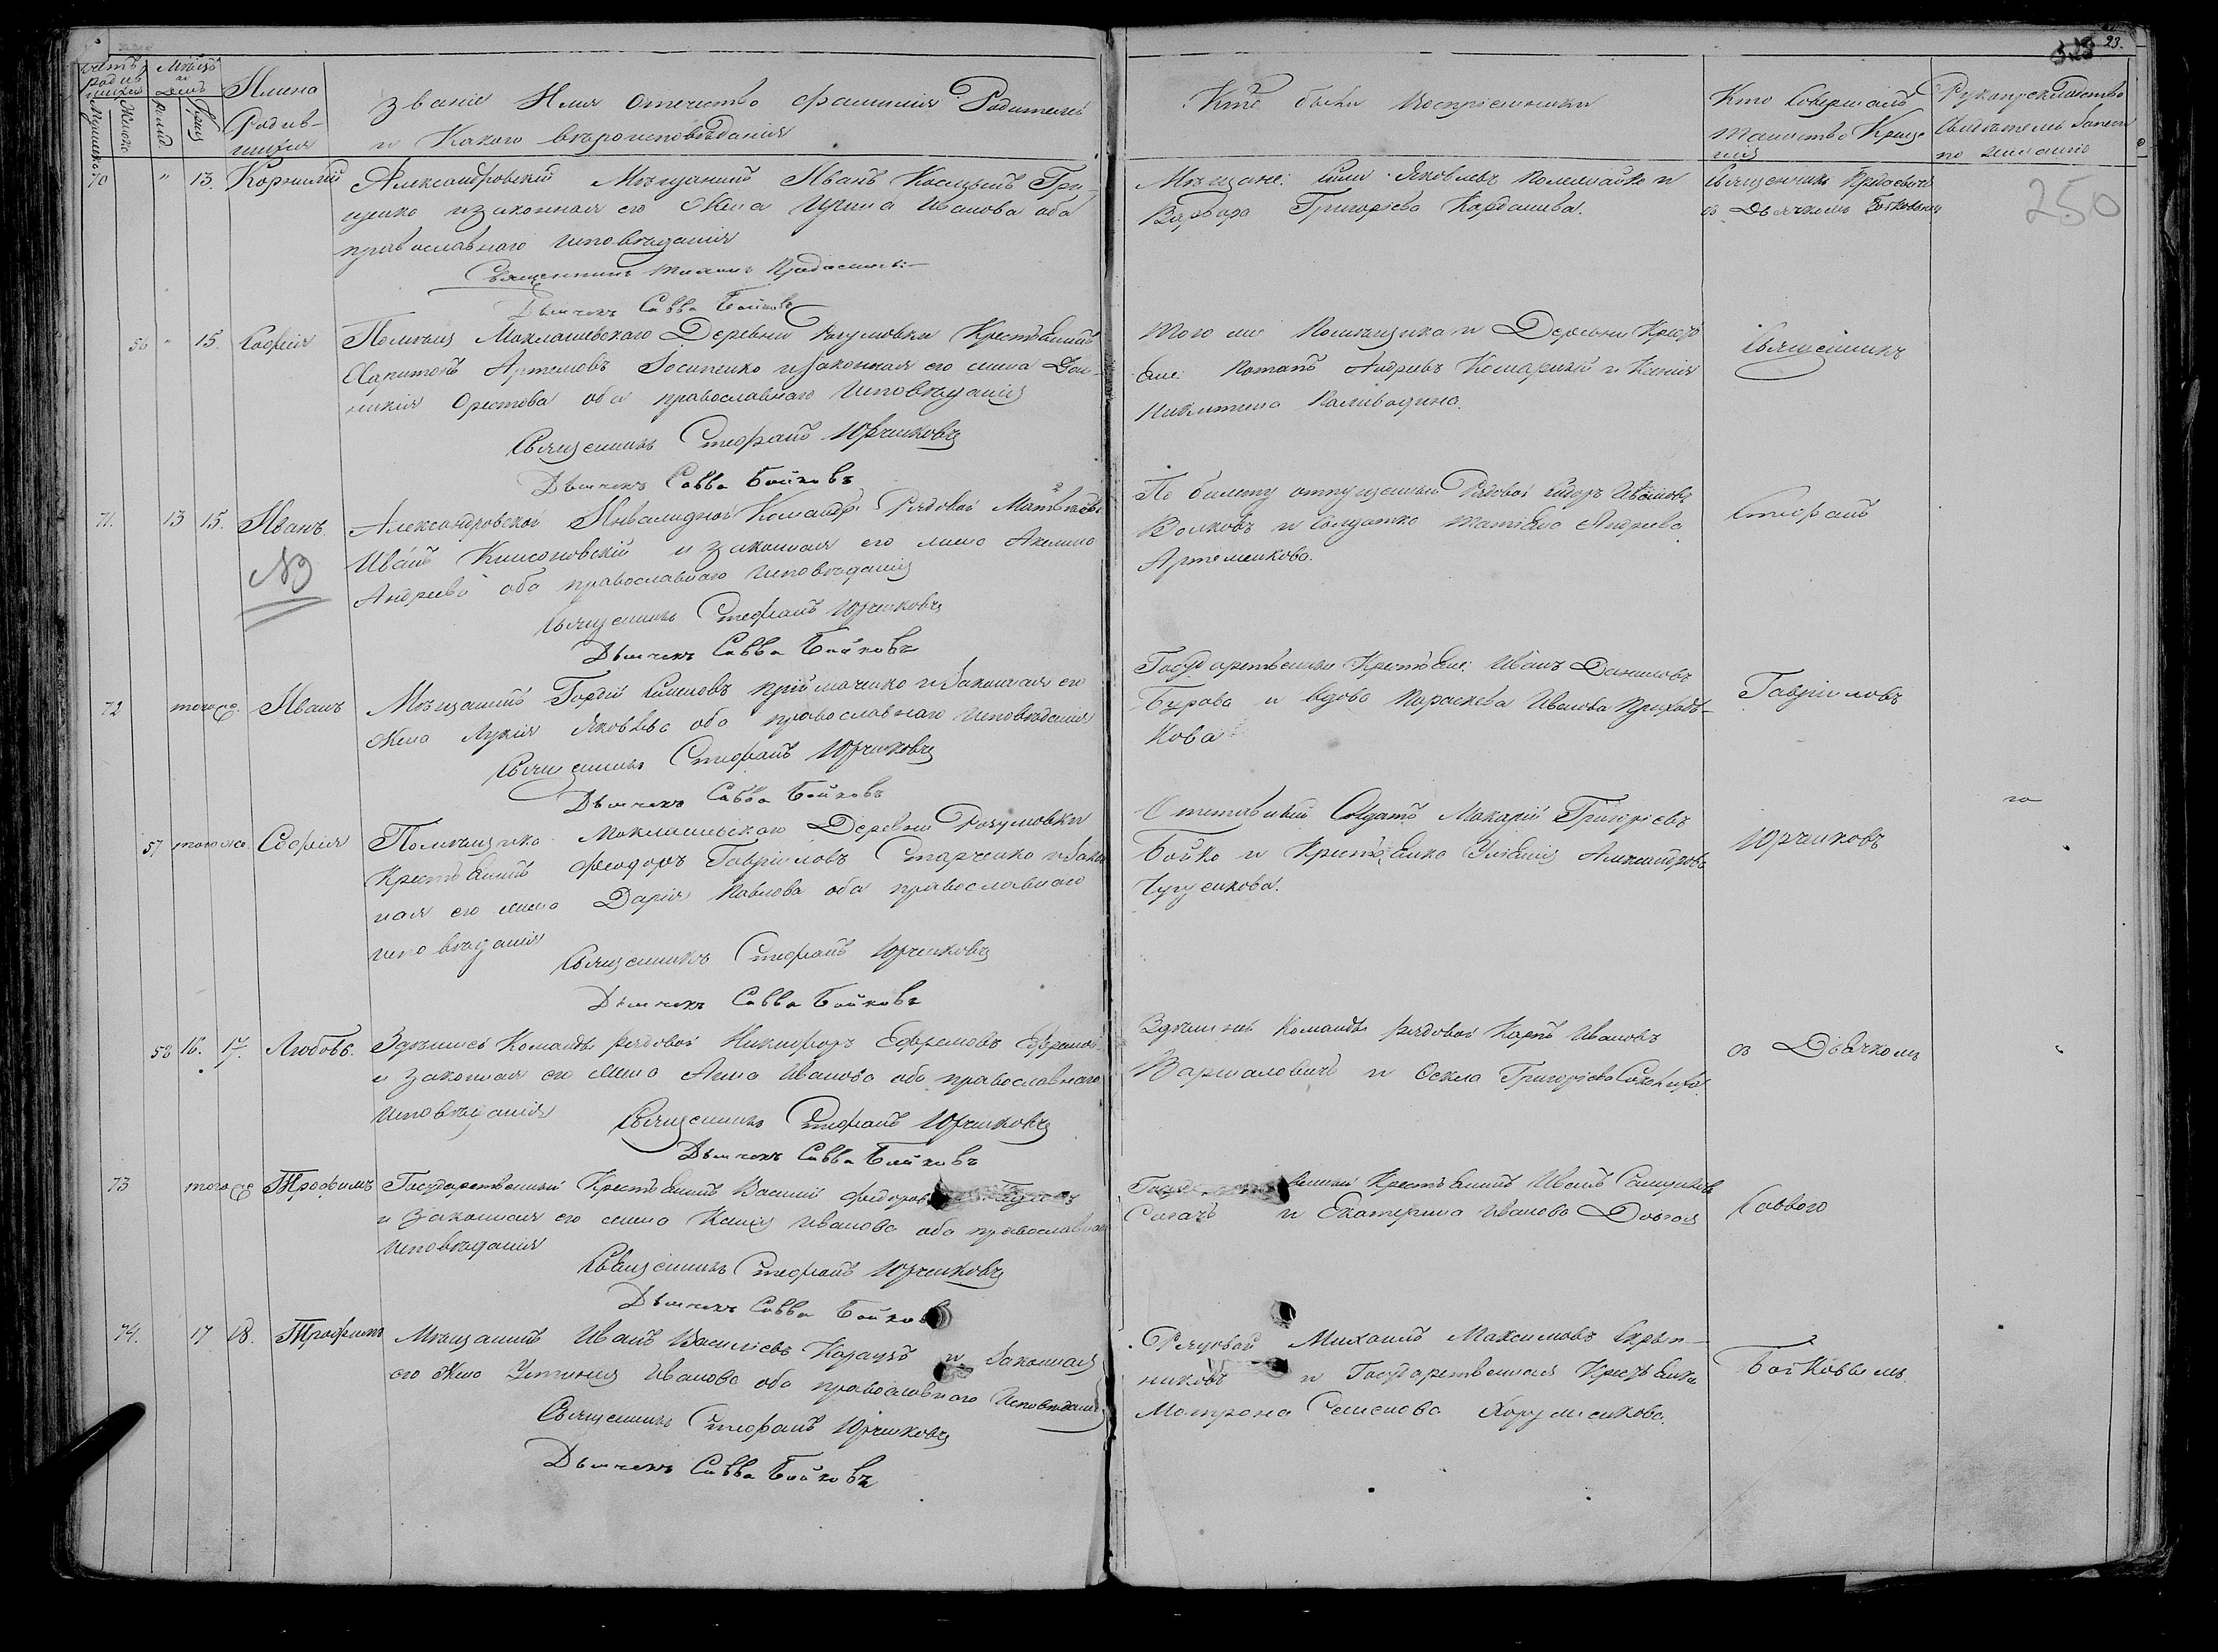 23.
Счетъ родившихся
Мѣсяцъ и день
Имена
Родив-
шихся
Мужеска
Женска
Рожд.
Крещ.
Званіе Имя Отечество фамилія Родителей
и Какого вѣроисповѣданія
Кто были Воспріемники
Кто Совершалъ
Таинство Креще
нія
Рукоприкладство
Свидѣтелей Записи
по желанію
250
70 " 13. Корнилій Александровскій Мѣщанинъ Иванъ Гри-
щенко и законная его Жена Ирина Иванова оба
православнаго исповѣданія
Священникъ
Дьячекъ Савва Бойковъ
Мѣщане: Яковлевъ и
Варвара Григорьева Кардашева.
Священникъ
съ Дьячкомъ Бойковымъ
56 " 15. Софія Помѣщ Маклашевскаго Деревни Разумовки Крестьянинъ
Харитонъ Артемовъ Іосипенко и законная его жена Дом-
никія Орестова оба православнаго исповѣданія
Священникъ Стефанъ Юрченковъ
Дьячекъ Савва Бойковъ
Того же Помѣщика и Деревни Крестья
не: Потапъ Андреевъ Комарній и Ксенія
Никитина
Священникъ
71. 13 15. Иванъ. Александровской Инвалидной Команды Рядовой Матвѣевъ
Иванъ и законная его жена Акелина
Андреева оба православнаго исповѣданія
NB
Священникъ Стефанъ Юрченковъ
Дьячекъ Савва Бойковъ
По билету отпущенный Рядовой Сидоръ Ивановъ
Волковъ и Солдатка Татьяна Андреева
Артеменкова.
Стефанъ
72 того же. Иванъ Мѣщанинъ Гордій Симоновъ Пріймаченко и Законная его
Жена Лукія Яковлева оба православнаго исповѣданія
Священникъ Стефанъ Юрченковъ
Дьячекъ Савва Бойковъ
Государственные Крестьяне: Иванъ Даниловъ
Бурава и вдова Параскева Иванова Приходь-
кова
Гавріиловъ
57 того же. Софія Помѣщика Маклашевскаго Деревни Разумовки
Крестьянинъ Феодоръ Гавріиловъ Старченко и Закон
ная его жена Дарія Павлова оба православнаго
исповѣданія
Священникъ Стефанъ Юрченковъ
Дьячекъ Савва Бойковъ
Отставный Солдатъ Макарій Григорьевъ
Бойко и Крестьянка Уліянія Александрова
Чугуенкова.
Юрченковъ
58 16. 17. Любовь. Здѣшней Команды рядовой Никифоръ Ефремовъ Ефремов
и законная его жена Анна Иванова оба православнаго
исповѣданія
Священникъ Стефанъ Юрченковъ
Дьячекъ Савва Бойковъ
Здѣшней Команды рядовой Карпъ Ивановъ
Варшаловичъ и Оскла Григорьева
съ Дьячкомъ
73 того же Трофимъ Государственный Крестьянинъ Василій Федоровъ
и законная его жена Ксенія Иванова оба православнаго
исповѣданія
Священникъ Стефанъ Юрченковъ
Дьячекъ Савва Бойковъ
Крестьянинъ Иванъ Самуиловъ
Сагачъ и Екатерина Иванова Довгая
Саввою
74. 17 18. Трофимъ Мѣщанинъ Иванъ Василіевъ Караузъ и Законная
его Жена Устинія Иванова оба православнаго Исповѣданія
Священникъ Стефанъ Юрченковъ
Дьячекъ Савва Бойковъ
Рядовой Михаилъ Максимовъ Скрып-
никовъ и Государственная Крестьянка
Матрона Семенова Хоруженкова.
Бойковымъ.